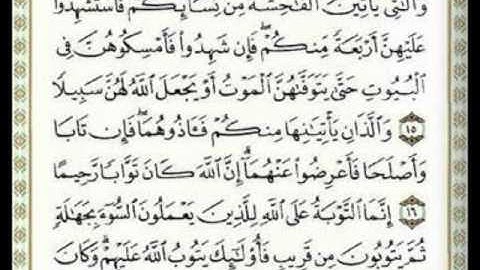 وَٱلَّـٰتِى يَأْتِينَ ٱلْفَـٰحِشَةَ مِن نِّسَآئِكُمْ فَٱسْتَشْهِدُوا۟
عَلَيْهِنَّ أَرْبَعَةً مِّنكُمْ ۖ فَإِن شَهِدُوا۟ فَأَمْسِكُوهُنَّ فِى
ٱلْبُيُوتِ حَتَّىٰ يَتَوَفَّىٰهُنَّ ٱلْمَوْتُ أَوْ يَجْعَلَ ٱللَّهُ لَهُنَّ سَبِيلًا
١٥ وَٱلَّذَانِ يَأْتِيَـٰنِهَا مِنكُمْ فَـَٔاذُوهُمَا ۖ فَإِن تَابَا
وَأَصْلَحَا فَأَعْرِضُوا۟ عَنْهُمَآ ۗ إِنَّ ٱللَّهَ كَانَ تَوَّابًا رَّحِيمًا
١٦ إِنَّمَا ٱلتَّوْبَةُ عَلَى ٱللَّهِ لِلَّذِينَ يَعْمَلُونَ ٱلسُّوٓءَ بِجَهَـٰلَةٍ
ثُمَّ يَتُوبُونَ مِن قَرِيبٍ فَأُو۟لَـٰٓئِكَ يَتُوبُ ٱللَّهُ عَلَيْهِمْ ۗ وَكَانَ